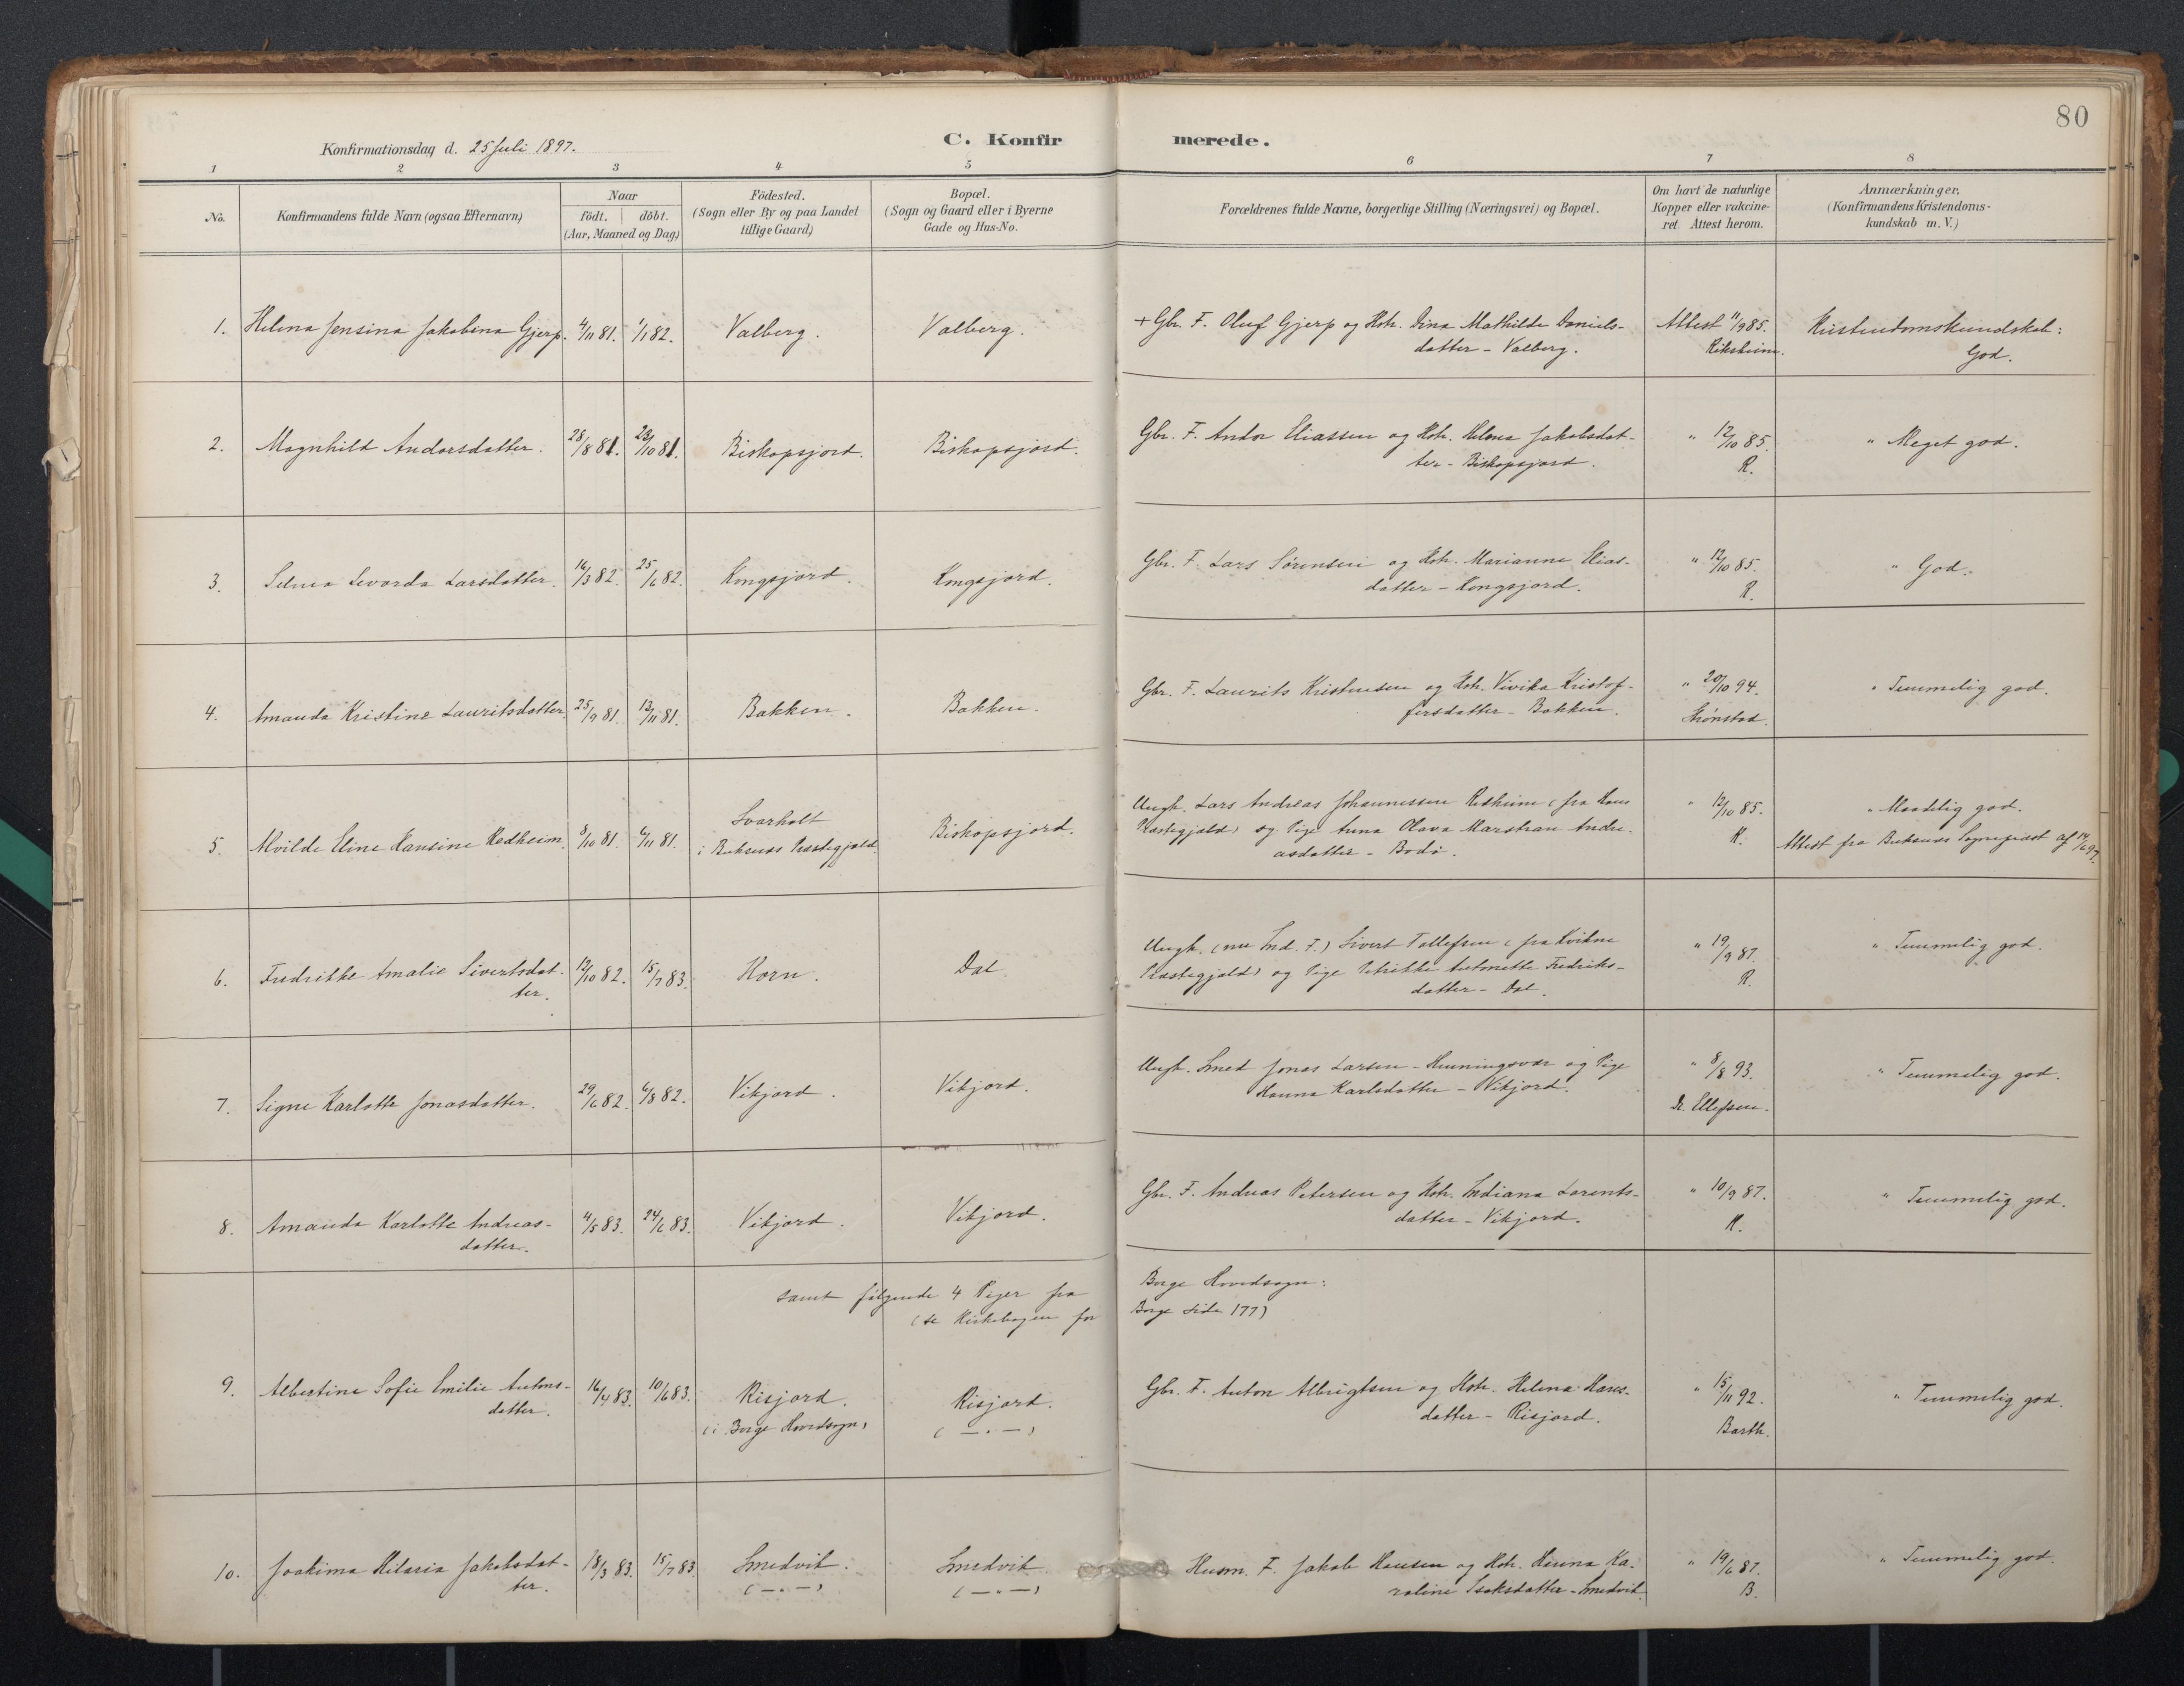 80
Konfirmationsdag d. 25 Juli 1897.
C. Konfirmerede.
1 2 3 4 5 6 7 8
No.
Konfirmandens fulde Navn (ogsaa Efternavn)
Naar
födt. döbt.
(Aar, Maaned og Dag)
Födested.
(Sogn eller By og paa Landet
tillige Gaard)
Bopæl.
(Sogn og Gaard eller i Byerne
Gade og Hus-No.
Forældrenes fulde Navne, borgerlige Stilling (Næringsvei) og Bopæl.
Om havt de naturlige
Kopper eller vakcine-
ret. Attest herom.
Anmærkninger,
(Konfirmandens Kristendoms-
kundskab m. V.)
1. Helena Jensina Jakobina Gjerp. 4/11 81. 1/1 82. Valberg. Valberg.
+ Gbr. F. Oluf Gjerp og Hstr. Dina Mathilde Daniels-
datter - Valberg.
Attest 11/9 85.
Riksheim.
Kristendomskundskab:
God.
2. Magnhild Andorsdatter. 28/8 81. 23/10 81. Biskopsjord. Biskopsjord.
Gbr. F. Andor Eliassen og Hstr. Helena Jakobsdat-
ter - Biskopsjord.
" 12/10 85.
R.
" Meget god.
3. Selma Sevarda Larsdatter. 16/3 82. 25/6 82. Kongsjord. Kongsjord.
Gbr. F. Lars Sörensen og Hstr. Marianne Elias-
datter - Kongsjord.
" 12/10 85.
R.
" God.
4. Amanda Kristine Lauritsdatter. 25/9 81. 13/11 81. Bakken. Bakken.
Gbr. F. Laurits Kristensen og Hstr. Vivika Kristof-
fersdatter - Bakken.
" 20/10 94.
Grönstad.
" Temmelig god.
5. Alvilde Eline Hansine Redheim. 8/10 81. 6/11 81. Svarholt
i Buksnæs Præstegjæld. Biskopsjord.
Ungk. Lars Andreas Johannessen Redheim (fra Hans
Præstegjæld) og Pige Anna Olava Marstran Andre-
asdatter - Bodö.
" 12/10 85.
R.
" Maadelig god.
Attest fra Buksnæs Sogneprest af 14/6 97.
6. Fredrikke Amalie Sivertsdat-
ter. 12/10 82. 15/7 83. Horn. Dal.
Ungk. (nu Ind. F.) Sivert Tollefsen (fra Kvikne
Præstegjæld) og Pige Petrikke Antonette Fredriks-
datter - Dal.
" 19/9 87.
R.
" Temmelig god.
7. Signe Karlotte Jonasdatter. 29/6 82. 6/8 82. Vikjord. Vikjord.
Ungk. Smed Jonas Larsen - Henningsvær og Pige
Hanna Karlsdatter - Vikjord.
" 8/8 93.
Dr. Ellefsen.
" Temmelig god.
8. Amanda Karlotte Andreas-
datter. 4/5 83. 24/6 83. Vikjord. Vikjord.
Gbr. F. Andreas Petersen og Hstr. Indiana Lorents-
datter - Vikjord.
" 10/9 87.
R.
" Temmelig god.
samt fölgende 4 Piger fra Borge Hovedsogn:
(se Kirkebogen for Borge side 177)
9. Albertine Sofie Emilie Antons-
datter. 16/4 83. 10/6 83. Risjord.
(i Borge Hovedsogn) Risjord.
( — . — )
Gbr. F. Anton Albrigtsen og Hstr. Helena Hans-
datter - Risjord.
" 15/11 92.
Barth.
" Temmelig god.
10. Joakima Hilaria Jakobsdat-
ter. 18/3 83. 15/7 83. Smedvik.
( — . — ) Smedvik.
( — . — )
Husm. F. Jakob Hansen og Hstr. Hanna Ka-
roline Isaksdatter - Smedvik.
" 19/6 87.
B.
" Temmelig god.